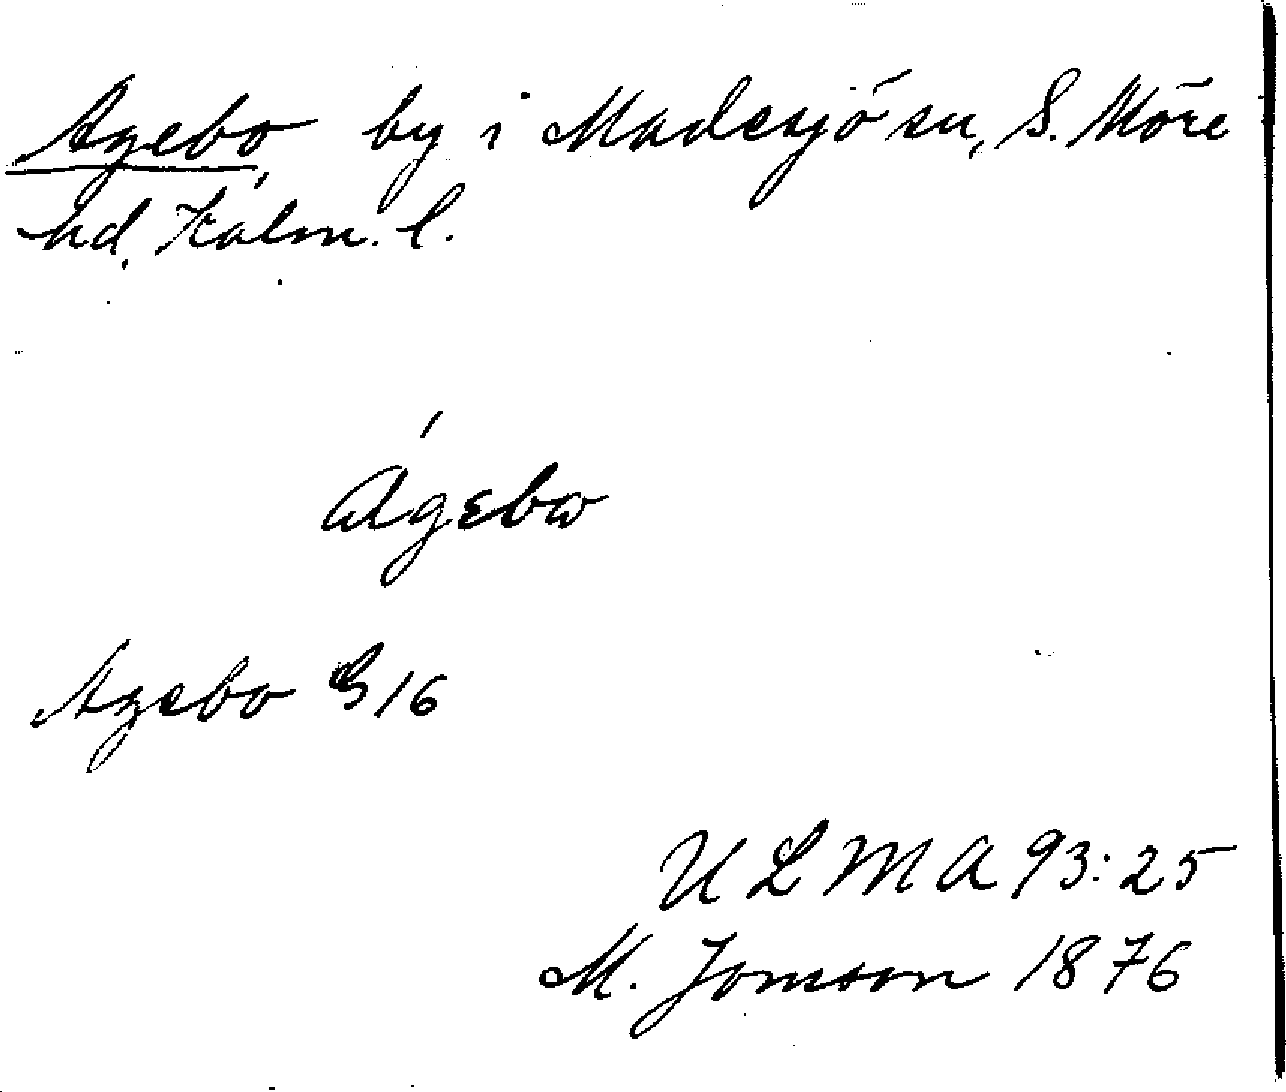 Agebo, by i Madesjö sn, S. Möre
hd, Kalm. l.
ágebω
Agebo S 16
ULMA 93:25
M. Jonsson 1876